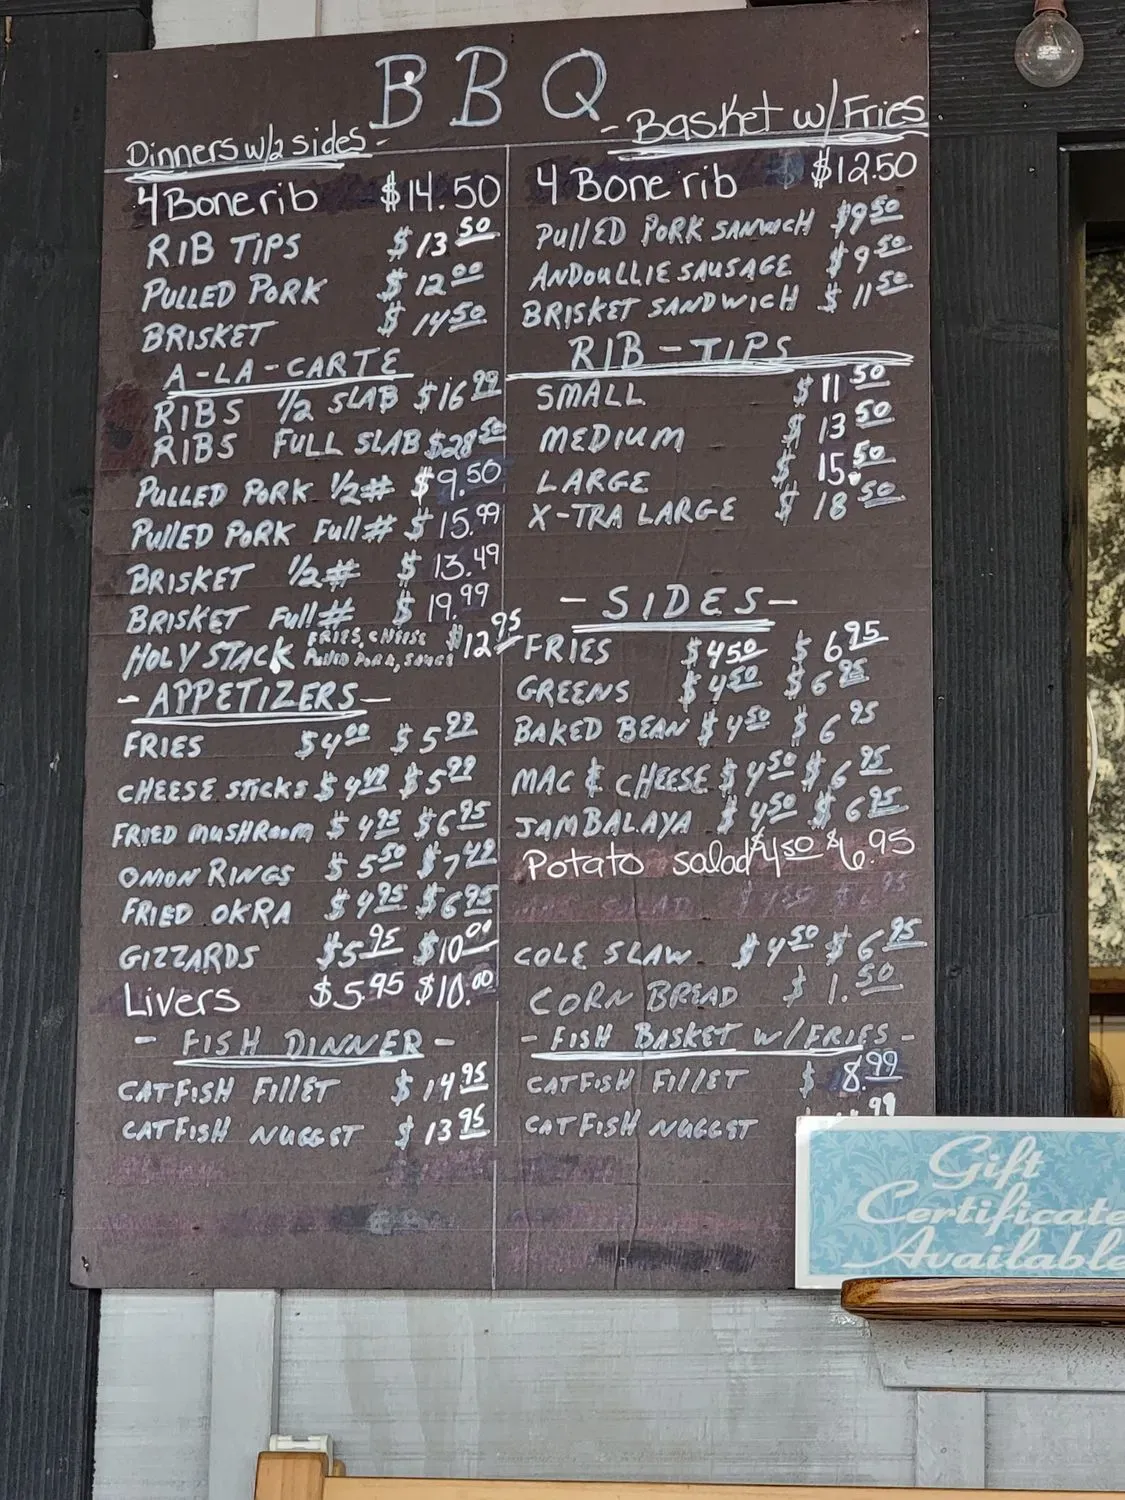 BBQ
Dinners w/2 sides -
4 Bone rib $14.50
RIB TIPS $13 50
PULLED PORK $12 00
BRISKET $14 50
A-LA-CARTE
RIBS 1/2 SLAB $16 99
RIBS FULL SLAB $28 50
PULLED PORK 1/2# $9.50
PullED PORK Full# $15.99
BRISKET 1/2# $13.49
BRISKET Full# $19.99
HOLY STACK FRIES, CHEESE PullED PORK, SAUCE $12 95
- APPETIZERS -
FRIES $4 00 $5 99
CHEESE STICKS $4 49 $5 99
FRIED MUSHROOM $4 95 $6 95
ONION RINGS $5 50 $7 49
FRIED OKRA $4 95 $6 95
GIZZARDS $5 95 $10 00
Livers $5.95 $10.00
- FISH DINNER -
CATFISH FILLET $14 95
CATFISH NUGGET $13 95
- Basket w/Fries
4 Bone rib $12.50
PullED PORK SANWICH $9 50
ANDOULLIE SAUSAGE $9 50
BRISKET SANDWICH $11 50
RIB-TIPS
SMALL $11 50
MEDIUM $13 50
LARGE $15.50
X-TRA LARGE $18 50
- SIDES -
FRIES $4 50 $6 95
GREENS $4 50 $6 95
BAKED BEAN $4 50 $6 95
MAC & CHEESE $4 50 $6 95
JAMBALAYA $4 50 $6 95
Potato salad $4 50 $6.95
COLE SLAW $4 50 $6 95
CORN BREAD $1.50
- FISH BASKET W/FRIES -
CATFISH FILLET $8.99
CATFISH NUGGET 99
Gift
Certificate
Available